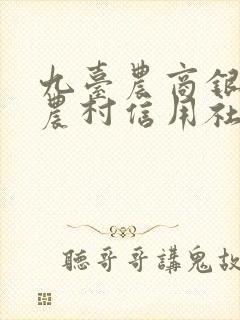 九臺農商銀
農村信用社
聽哥哥講鬼故